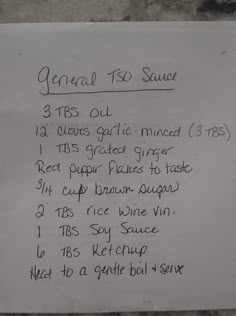 General TSO Sauce
3 TBS oil
12 cloves garlic - minced (3 TBS)
1 TBS grated ginger
Red pepper flakes to taste
3/4 cup brown sugar
2 TBS rice wine vin.
1 TBS Soy Sauce
6 TBS Ketchup
Heat to a gentle boil + serve